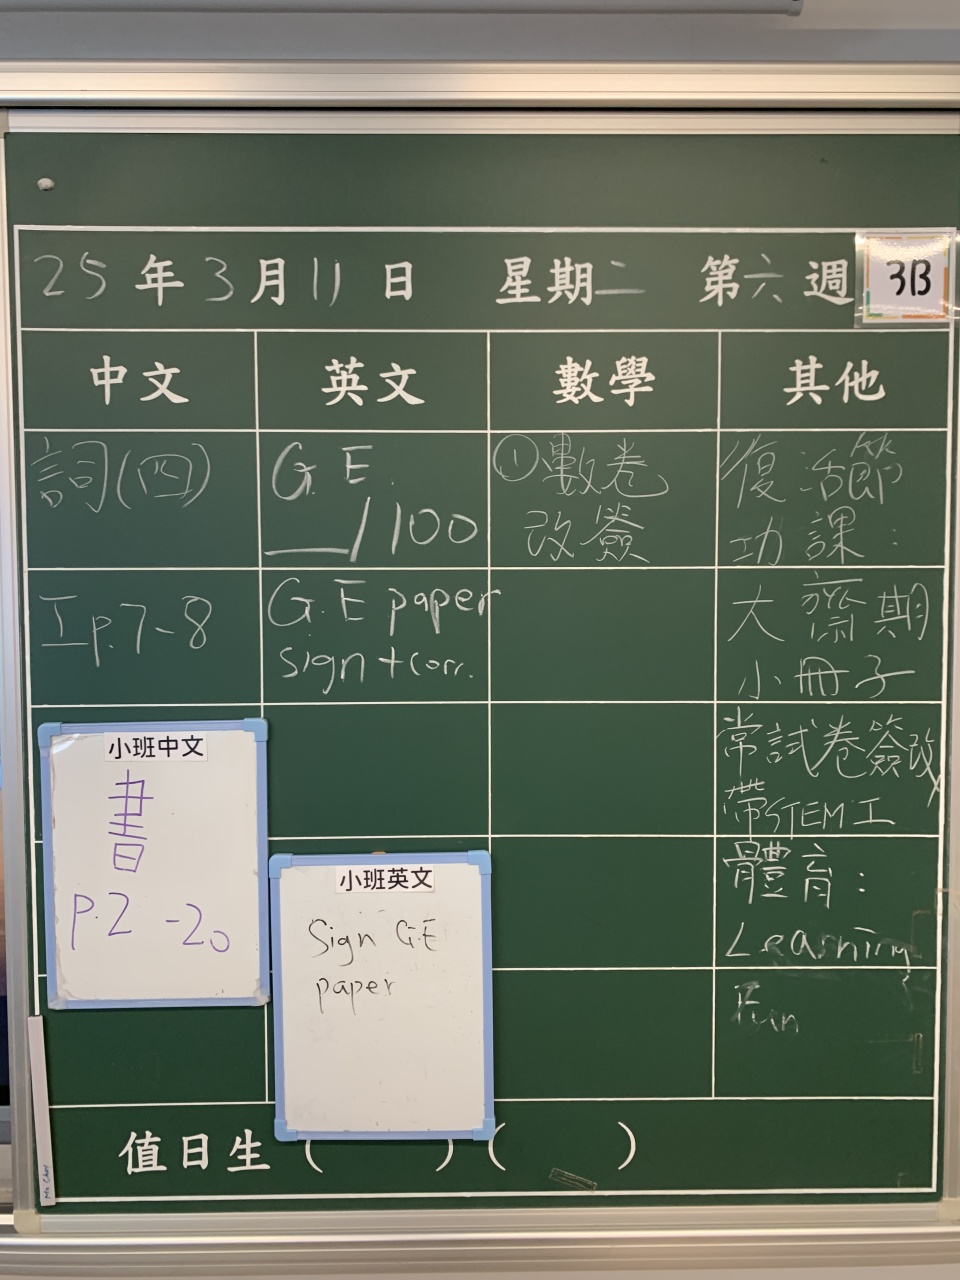 25年3月11日 星期二 第六週 3B
中文 英文 數學 其他
詞(四)
工p.7-8
G.E.
__/100
G.E paper
sign + corr.
①數卷
改簽
復活節
功課:
大齋期
小冊子
常試卷簽改
帶STEM工
體育:
Learning
Fun
小班中文
書
p.2 -20
小班英文
Sign G.E
paper
值日生( )( )